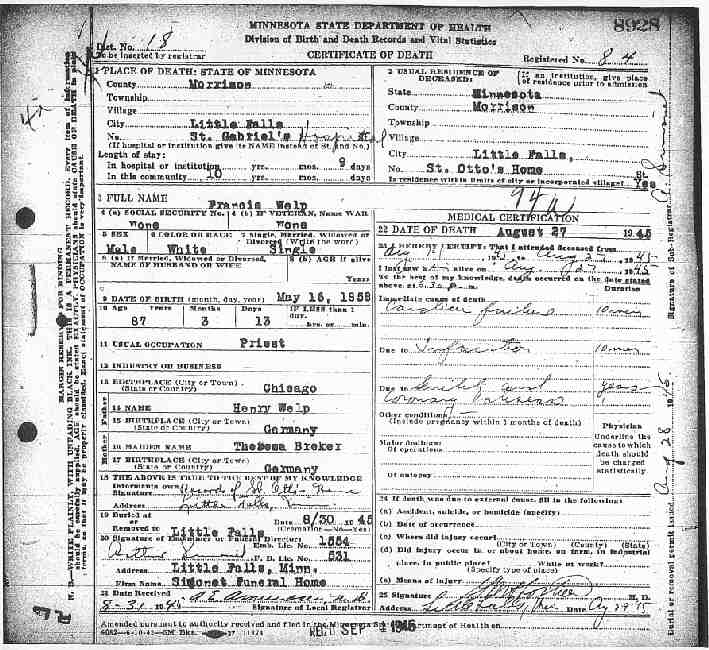 MINNESOTA STATE DEPARTMENT OF HEALTH
8928
Division of Birth and Death Records and Vital Statistics
Dist. No. 18
To be inserted by registrar
CERTIFICATE OF DEATH
Registered No. 84
1 PLACE OF DEATH: STATE OF MINNESOTA
County Morrison
Township
Village
City Little Falls
No. St. Gabriel's Hospital
(If hospital or institution give its NAME instead of St. and No.)
Length of stay:
In hospital or institution yrs. mos. 9 days
In this community 10 yrs. mos. days
2 USUAL RESIDENCE OF DECEASED: (If an institution, give place of residence prior to admission
State Minnesota
County Morrison
Township
Village
City Little Falls,
No. St. Otto's Home St.
Is residence within limits of city or incorporated village? Yes
3 FULL NAME
Francis Welp
4 (a) SOCIAL SECURITY No. None
4 (b) IF VETERAN, NAME WAR None
5 SEX Male
6 COLOR OR RACE White
7 Single, Married, Widowed or Divorced (Write the word) Single
8 (a) If Married, Widowed or Divorced, NAME OF HUSBAND OR WIFE
8 (b) AGE if alive
Years
9 DATE OF BIRTH (month, day, year) May 16, 1858
10 AGE Years Months Days IF LESS than 1 day.
87 3 13 hrs. or min.
11 USUAL OCCUPATION Priest
12 INDUSTRY OR BUSINESS
13 BIRTHPLACE (City or Town)
(State or Country) Chicago
Father
14 NAME Henry Welp
15 BIRTHPLACE (City or Town)
(State or Country) Germany
Mother
16 MAIDEN NAME Theresa Broker
17 BIRTHPLACE (City or Town)
(State or Country) Germany
18 THE ABOVE IS TRUE TO THE BEST OF MY KNOWLEDGE
Informant's own
Signature
Address Little Falls,
19 Burial or
Removed to Little Falls Date 8/30 1945
(Cremation—No—Yes)
20 Signature of Embalmer or Funeral Director:
Emb. Lic. No. 1554
F. D. Lic. No. 521
Address Little Falls, Minn.
Firm Name Simonet Funeral Home
21
8-31 1945
Signature of Local Registrar
MEDICAL CERTIFICATION
22 DATE OF DEATH August 27 1945
23 I HEREBY CERTIFY: That I attended deceased from
1945
I last saw alive on Aug. 27 1945
To the best of my knowledge, death occurred on the date stated
above at 6:30 p.m.
Duration
Immediate cause of death
Cardiac failure
Due to
Due to Senility and years
Coronary
Other conditions
(Include pregnancy within 3 months of death)
Major findings:
Of operations
Of autopsy
Physician
Underline the cause to which death should be charged statistically
24 If death was due to external cause, fill in the following:
(a) Accident, suicide, or homicide (specify)
(b) Date of occurrence
(c) Where did injury occur?
(City or Town) (County) (State)
(d) Did injury occur in or about home, on farm, in industrial
place, in public place? While at work?
(Specify type of place)
(e) Means of injury
25 Signature M. D.
Address Little Falls, Date Aug 29 45
Amended pursuant to authority received and filed in the Minnesota State Department of Health on
REC'D SEP 4 1945
MARGIN RESERVED FOR BINDING
N. B.—WRITE PLAINLY, WITH UNFADING BLACK INK. THIS IS A PERMANENT RECORD. Every item of information should be carefully supplied. AGE should be stated EXACTLY. PHYSICIANS should state CAUSE OF DEATH in plain terms, so that it may be properly classified. Exact statement of OCCUPATION is very important.
Burial or removal permit issued Aug 28 1945
Signature of Sub-Registrar